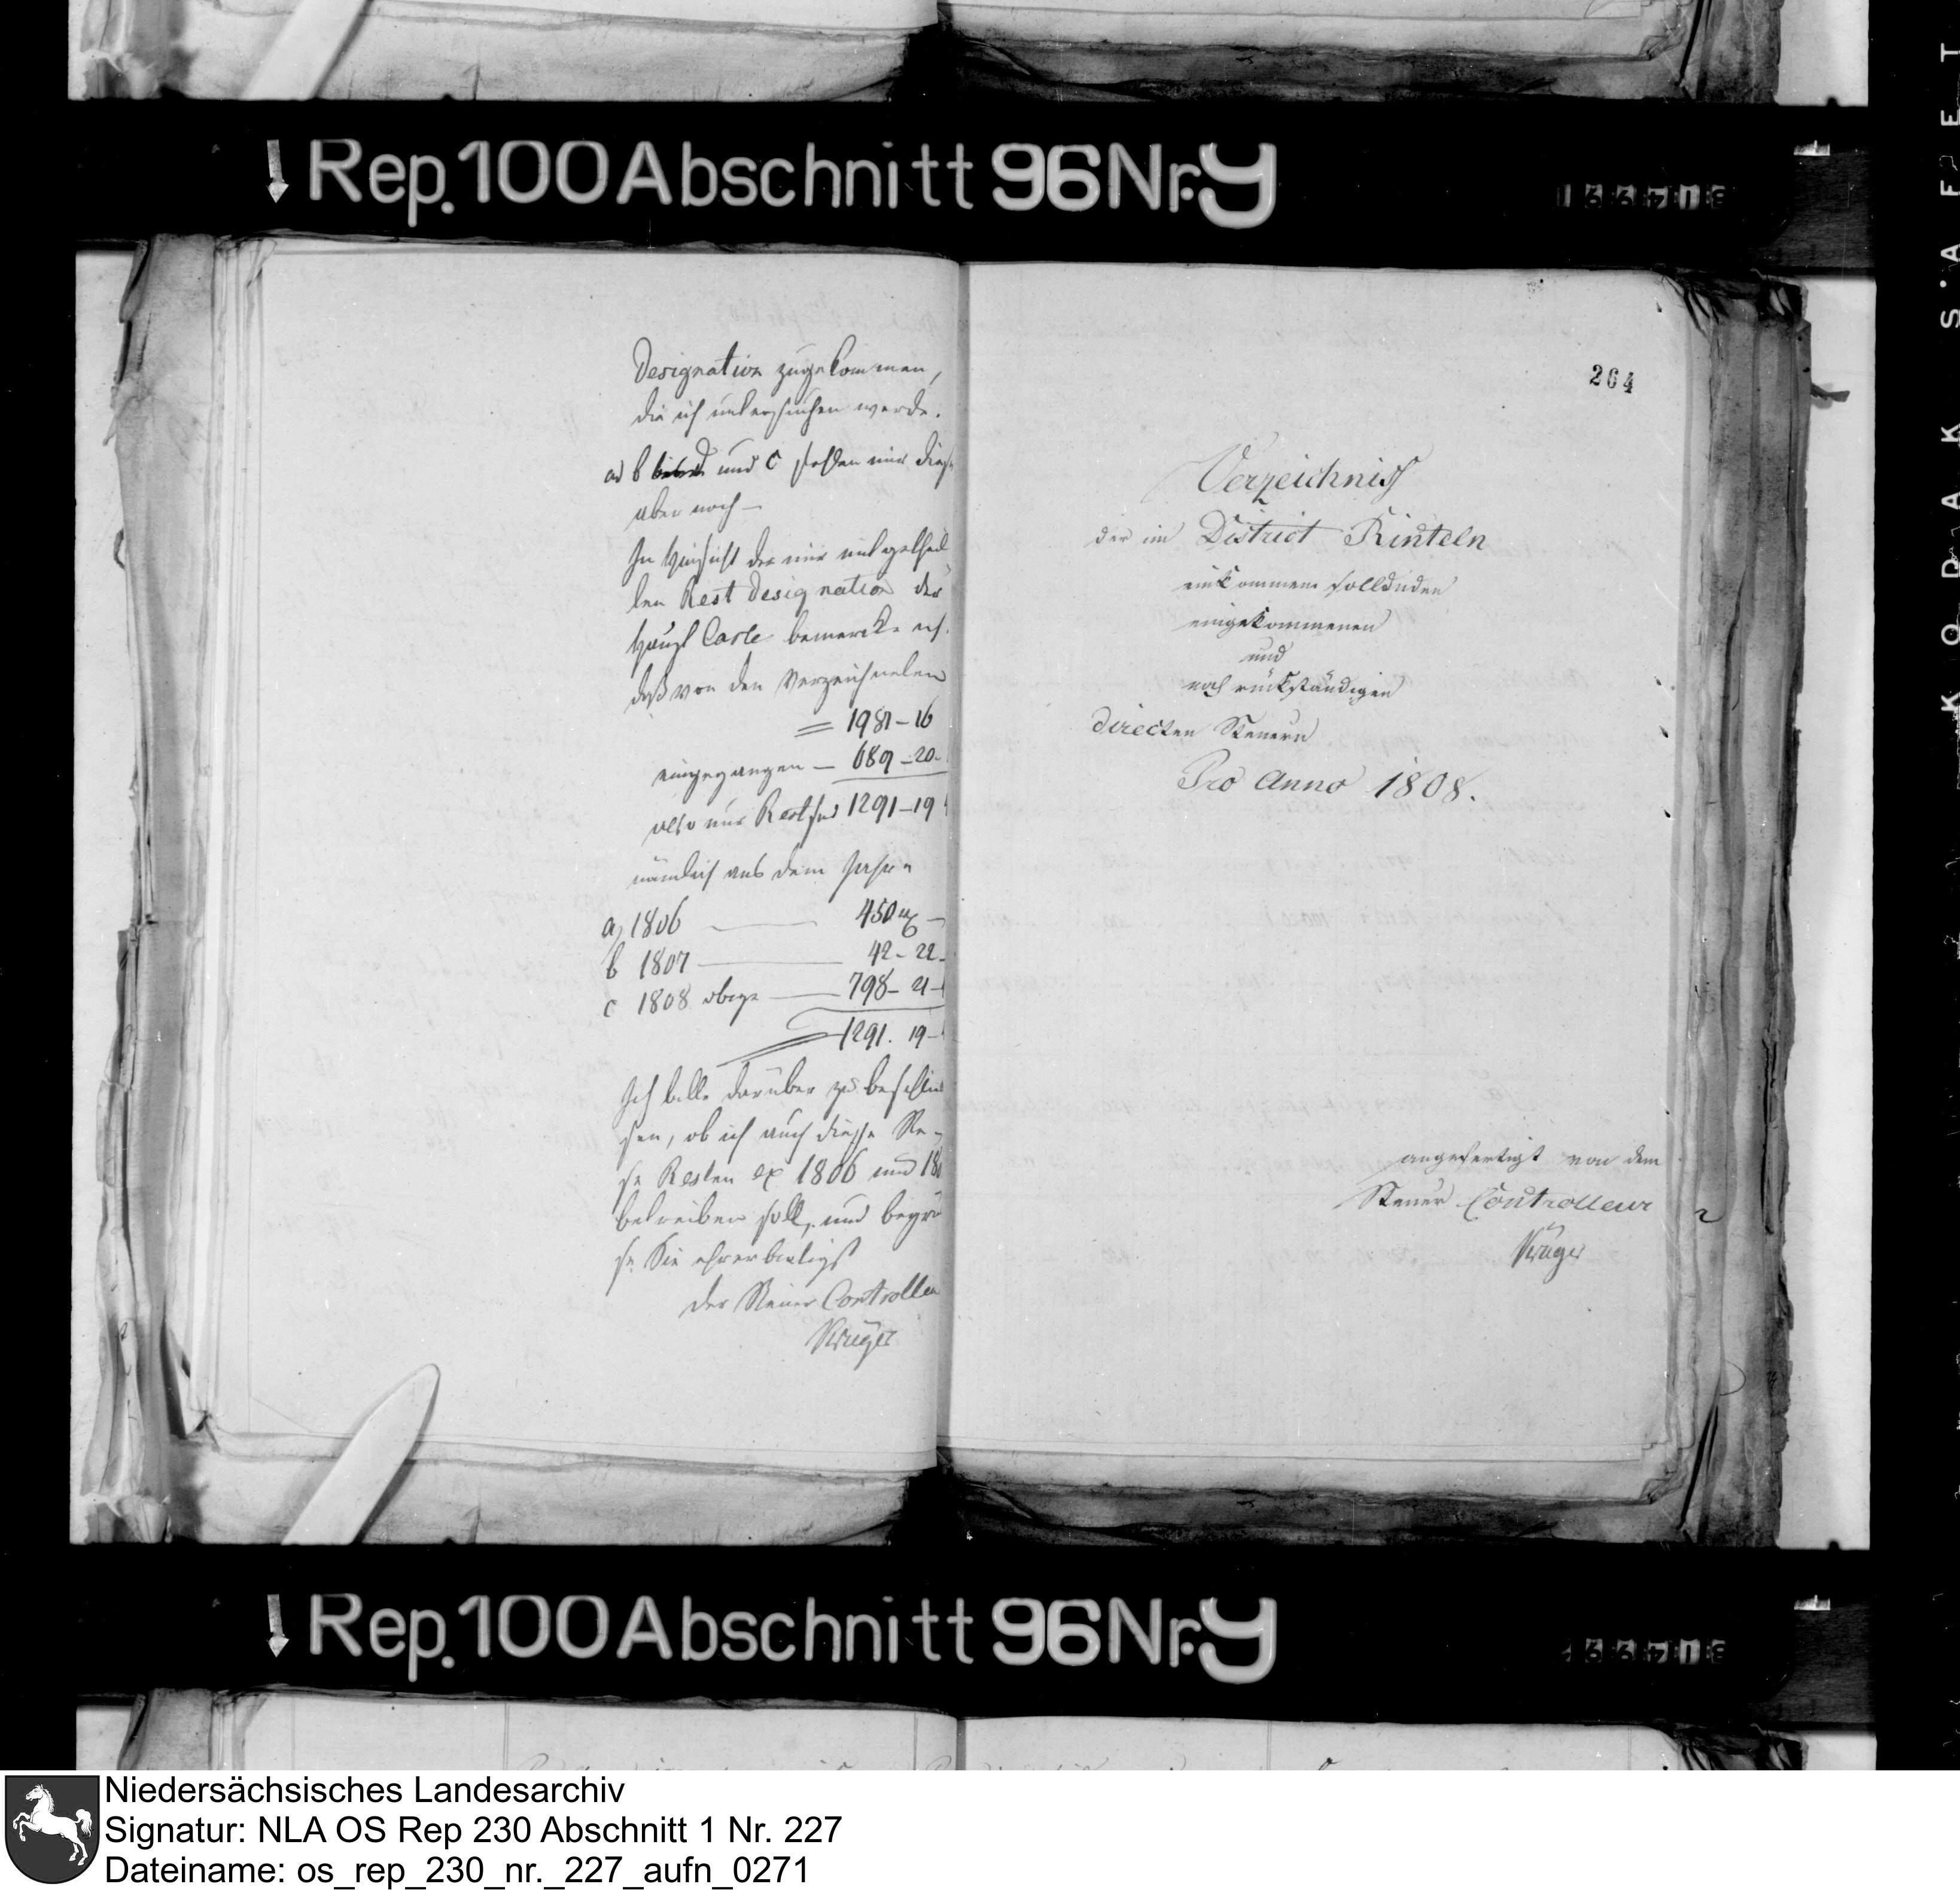 Rep. 100 Abschnitt 96 Nr. 9
Designation zugekommen,
die ich untersuchen werde.
ad b und c fehlen mir diese
aber noch —
In Hinsicht der mir mitgetheil
ten Rest Designation der
Haupt Casse bemercke ich,
daß von den Verzeichneten
= 1981 - 16
eingegangen — 689 - 20
also nur Rest sind 1291 - 19
nämlich aus dem Jahre
a, 1806 — 450 rℓ —
b 1807 — 42 - 22 -
c 1808 obige — 798 - 21 -
1291. 19 -
Ich bitte darüber zu befehlen
ob ich auch diese
Resten ex 1806 und 180
betreiben soll, und
Sie ehrerbietigst
der Steuer Controlleu
Krüger
264
Verzeichniss
der im District Rinteln
einkommen sollenden
eingekommenen
und
noch rückständigen
directen Steuern
Pro Anno 1808.
angefertigt von dem
Steuer Controlleur
Krüger
Rep. 100 Abschnitt 96 Nr. 9
KODAK SAFET
Niedersächsisches Landesarchiv
Signatur: NLA OS Rep 230 Abschnitt 1 Nr. 227
Dateiname: os_rep_230_nr._227_aufn_0271